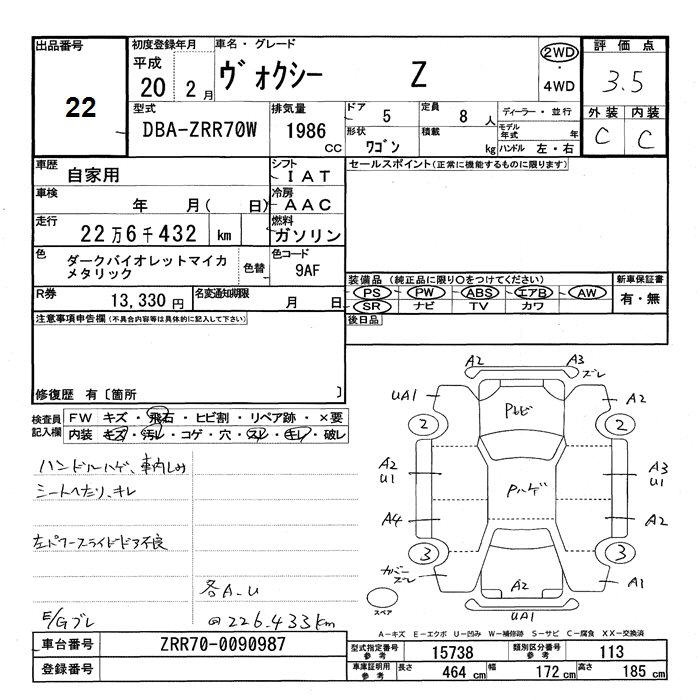 出品番号 22
初度登録年月 平成 20 2月
車名・グレード ヴォクシー Z
2WD・4WD
評価点 3.5
外装 C 内装 C
型式 DBA-ZRR70W
排気量 1986 CC
ドア 5
定員 8人
ディーラー・並行
形状 ワゴン
積載 kg
モデル年式 年
ハンドル 左・右
車歴 自家用
シフト IAT
セールスポイント(正常に機能するものに限ります)
車検 年 月( 日)
冷房 AAC
走行 22万6千432 km
燃料 ガソリン
色 ダークバイオレットマイカメタリック
色替
色コード 9AF
装備品(純正品に限り○をつけてください)
新車保証書 有・無
PS PW ABS エアB AW
SR ナビ TV カワ
R券 13,330円
名変通知期限 月 日
後日品
注意事項申告欄(不具合内容等は具体的に記入して下さい)
修復歴 有〔箇所 〕
検査員記入欄
FW キズ・飛石・ヒビ割・リペア跡・×要
内装 キズ・汚レ・コゲ・穴・スレ・キレ・破レ
ハンドルハゲ、車内しみ
シートへたり、キレ
左パワースライドドア不良
各A.U
E/Gブレ
@226.433km
A2 A3 ズレ
UA1 A2
Pトビ
2 2
A2 U1 A3 U1
Pハゲ
A4 A2
3 3
カバーズレ A2 A1
スペア
UA1
A-キズ E-エクボ U-凹み W-補修跡 S-サビ C-腐食 XX-交換済
車台番号 ZRR70-0090987
登録番号
型式指定番号 参考 15738
類別区分番号 参考 113
車庫証明用 参考 長さ 464 cm 幅 172 cm 高さ 185 cm